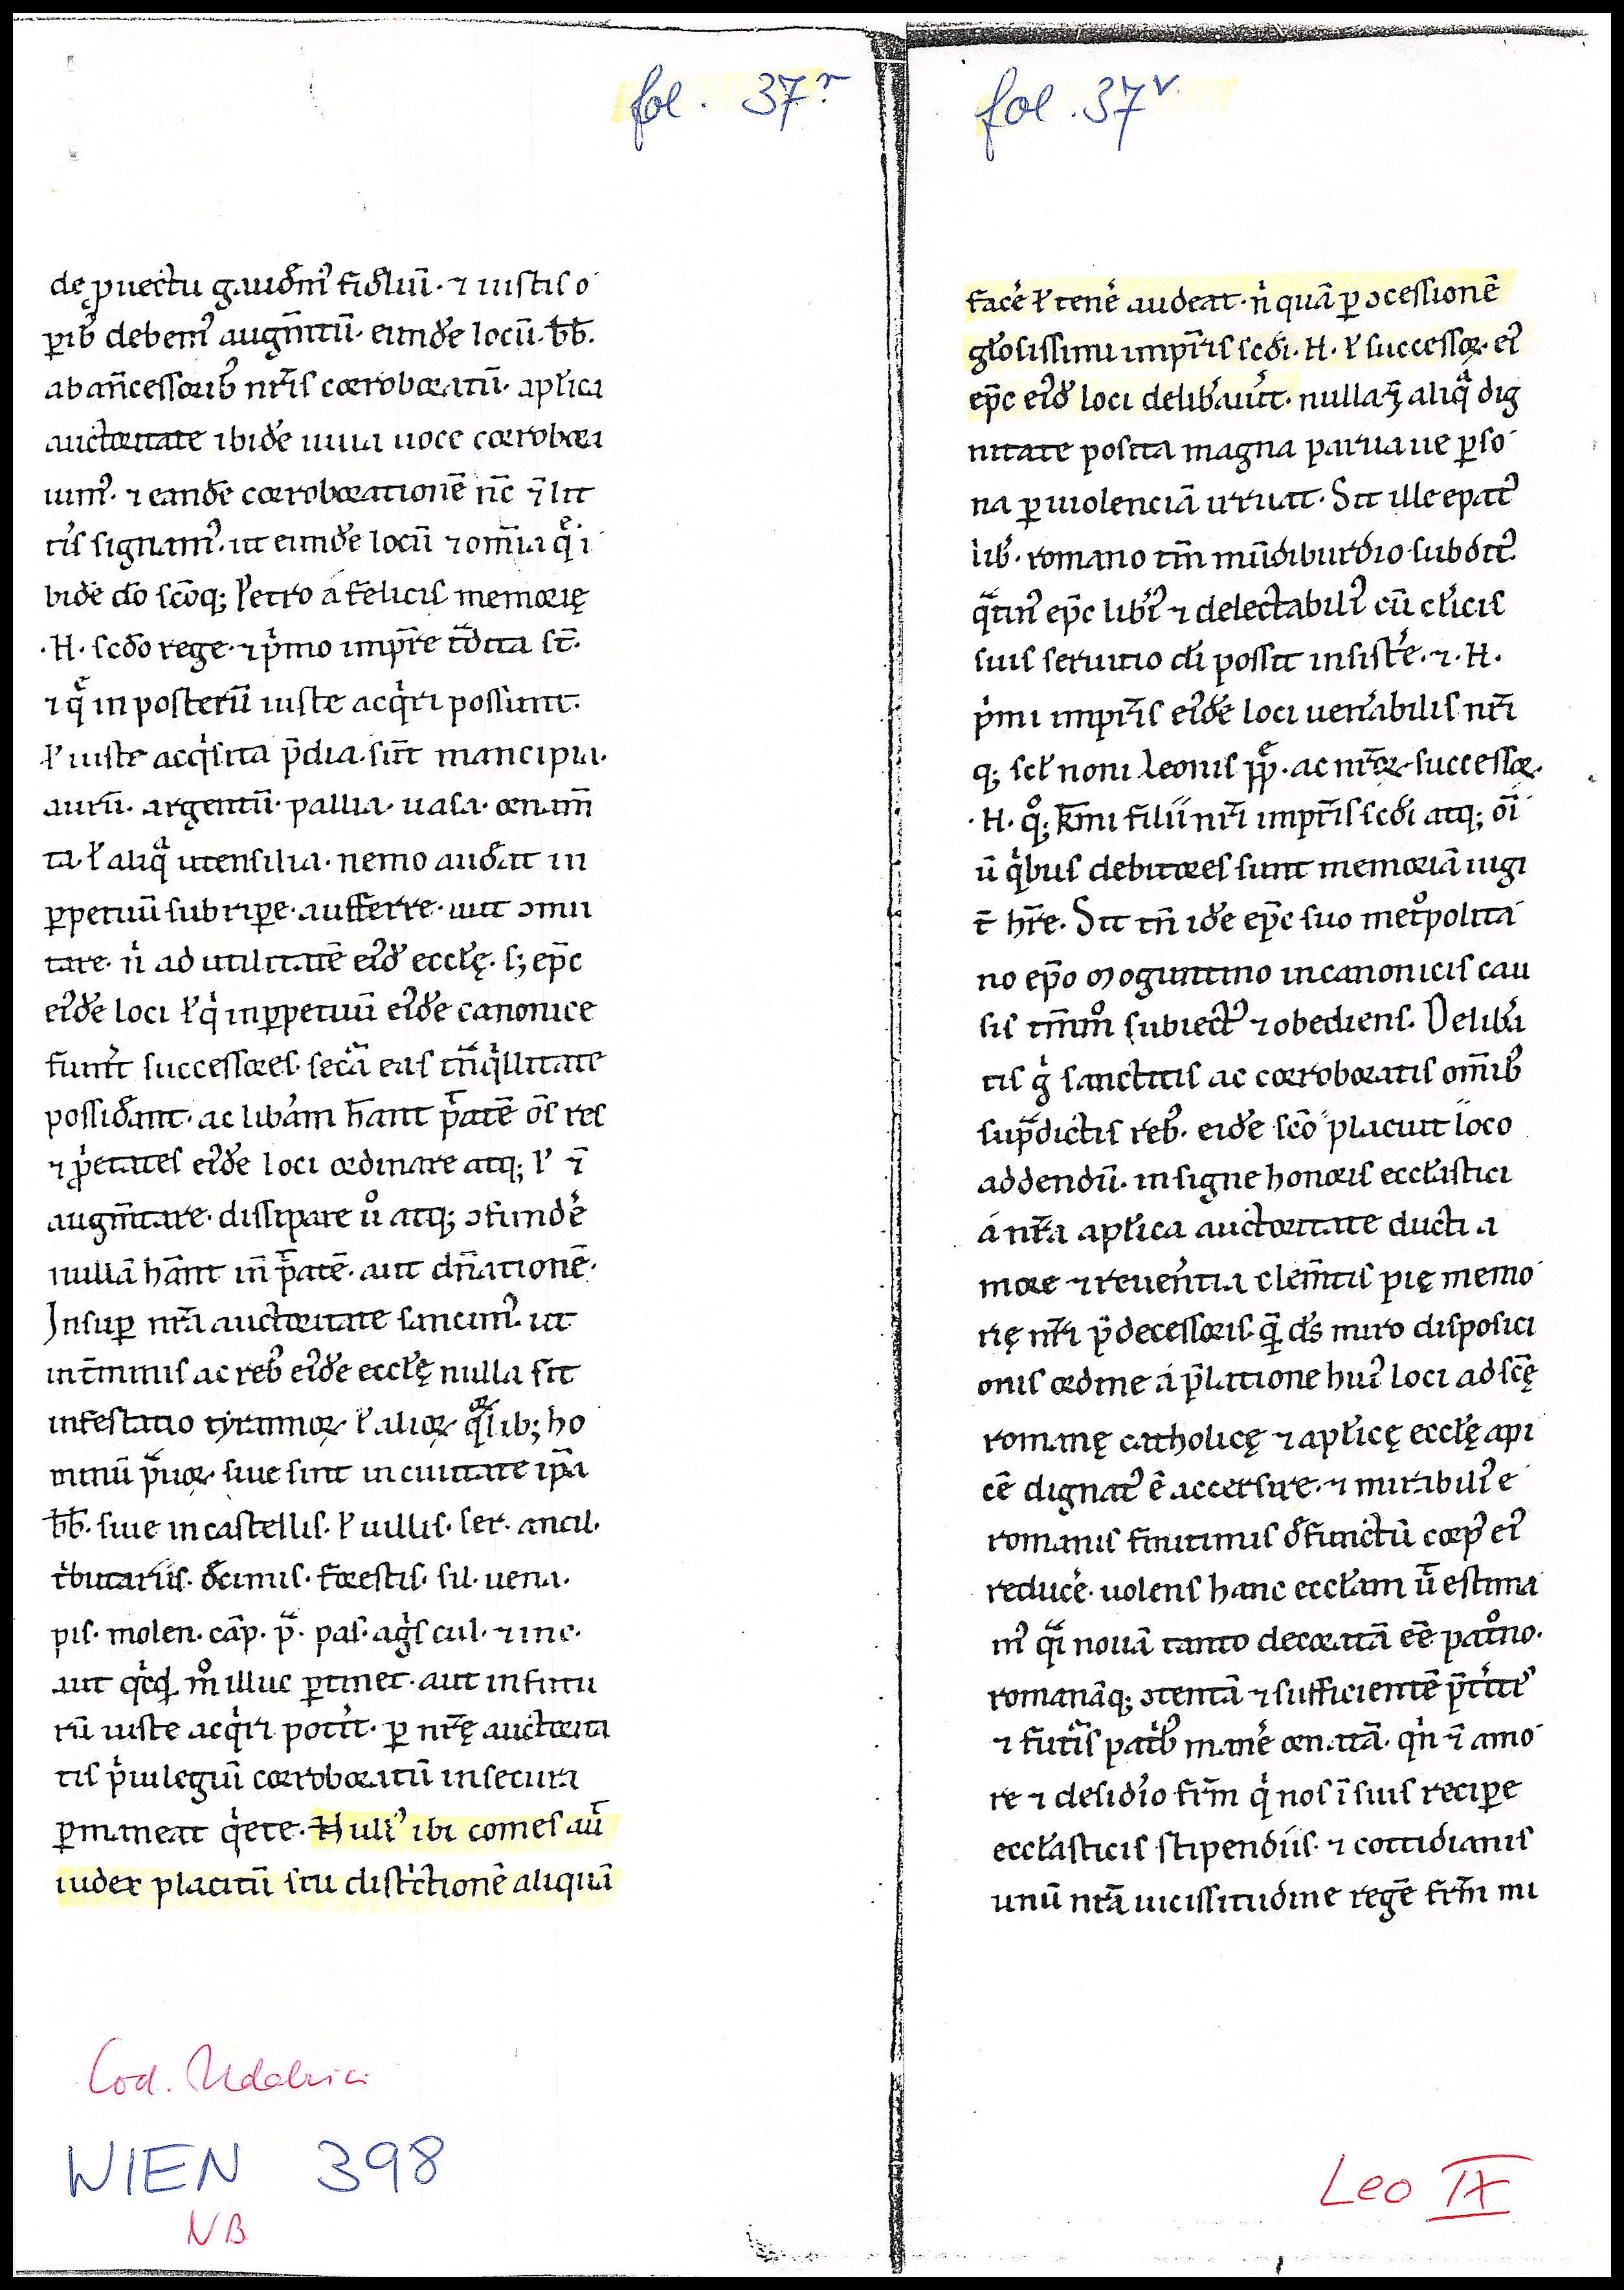 fol. 37r
de ꝓuectu gaudem᷒ fideliū· ⁊ iustis o
ꝑib; debem᷒ augm̄tū· eundē locū· bb̄·
ab an̄cessorib; nr̄is corroboratū· apl̄ica
auctoritate ibidē uiua uoce corrobora
uim᷒· ⁊ eandē corroborationē nc̄ ī litt
ris signam᷒· ut eundē locū ⁊ om̄ia q̄ i
bidē dō scōq; Petro a felicis memorię
·H· scd̄o rege· ⁊ pͥmo imp̄re tͣdita st̄·
⁊ q̄ in posterū iuste acqͥri possunt·
ł iuste acqͥsita p̄dia· sint mancipia·
aurū· argentū· pallia· uasa· ornam̄
ta· ł aliqͣ utensilia· nemo audeat in
ꝑpetuū subriꝑe· aufferre· aut ↄmu
tare· nͥ ad utilitatē eiꝰd eccl̄ę· s; ep̄c
eiꝰdē loci ł qͥ in ꝑpetuū eiꝰdē canonice
fuer̄t successores· secͣa eas tͣnqͥllitate
possideant· ac liberam hn̄ant p̄tatē om̄s res
⁊ ꝓpͥetates eiꝰdē loci ordinare atq; ł ī
augm̄tare· dissipare ū atq; ↄfundē
nullā han̄t in̄ p̄tatē· aut dn̄ationē·
Insuꝑ nr̄a auctoritate sancim᷒· ut
in t̄minis ac reb; eiꝰdē eccl̄ę nulla sit
infestatio tyrannoꝝ· ł alioꝝ qͣlib; ho
minū pͣuoꝝ· siue sint in ciuitate ip̄a
bb̄· siue in castellis· ł uillis· ser· ancil·
tͥbutariis· decimis· forestis· sil· uena·
pis· molen· cāp· pͣ· pas· agͥs cul· ⁊ inc·
aut qͥcqͥd m° illuc ꝑtinet· aut in futu
rū iuste acqͥri potit· ꝑ nr̄ę auctorita
tis pͥuilegiū corroboratū in secura
ꝑmaneat qͥete· Null᷒ ibi comes aū
iudex placitū seu distͥctionē aliquā
Cod. Udalrici
WIEN 398
NB
fol. 37v
facē ł tenē audeat· nͥ quā ꝑ ↄcessionē
gl̄osissimi imp̄ris scd̄i· H· ł successoꝝ· eiꝰ
ep̄c eiꝰd loci deliberauit· nulla ī aliqͣ dig
nitate posita magna paruaue ꝑso
na ꝑ uiolenciā irruat· Sit ille epat᷒
lib· romano tm̄ mūdiburdio subdit᷒·
qͣtin᷒ ep̄c liber᷒ ⁊ delectabili᷒ cū cl̄icis
suis seruitio dī possit insistē· ⁊· H·
pͥmi imp̄ris eiꝰdē loci uenerabilis nr̄i
q; scł noni Leonis pp̄· ac nr̄oꝝ· successoꝝ·
·H· q°; k̄mi filii nr̄i imp̄ris scd̄i atq; oī
ū qͥbus debitores sunt memoriā iugi
t̄ hr̄e· Sit tn̄ idē ep̄c suo met°polita
no ep̄o Moguntino in canonicis cau
sis tm̄m° subiect᷒ ⁊ obediens· Delibera
tis gͥ sanctitis ac corroboratis om̄ib;
supͣdictis reb· eidē scō placuit loco
addendū· insigne honoris eccl̄astici
a nr̄a apl̄ica auctoritate ducti a
more ⁊ reuerentia clem̄tis pię memo
rię nr̄i p̄decessoris· q̄ ds̄ miro disposici
onis ordine a p̄latione hui᷒ loci ad scę
romanę catholicę ⁊ apl̄icę eccl̄ę api
cē dignat᷒ ē accersire· ⁊ mirabili᷒ e
romanis finitimis defunctū corp᷒ ei᷒
reducē· uolens hanc eccl̄am ū estima
m᷒ qͣi nouā tanto decoratā eē pat°no·
romanāq; ↄtentā ⁊ sufficientē p̄teriti᷒
⁊ futͥis patͥb; manē ornatā· qͥn ī amo
re ⁊ desiderio frm̄ qͥ nos ī suis reciꝑe
eccl̄asticis stipendiis· ⁊ cottidianis
unū nr̄a uicissitudine regē frm̄ mi
Leo IX